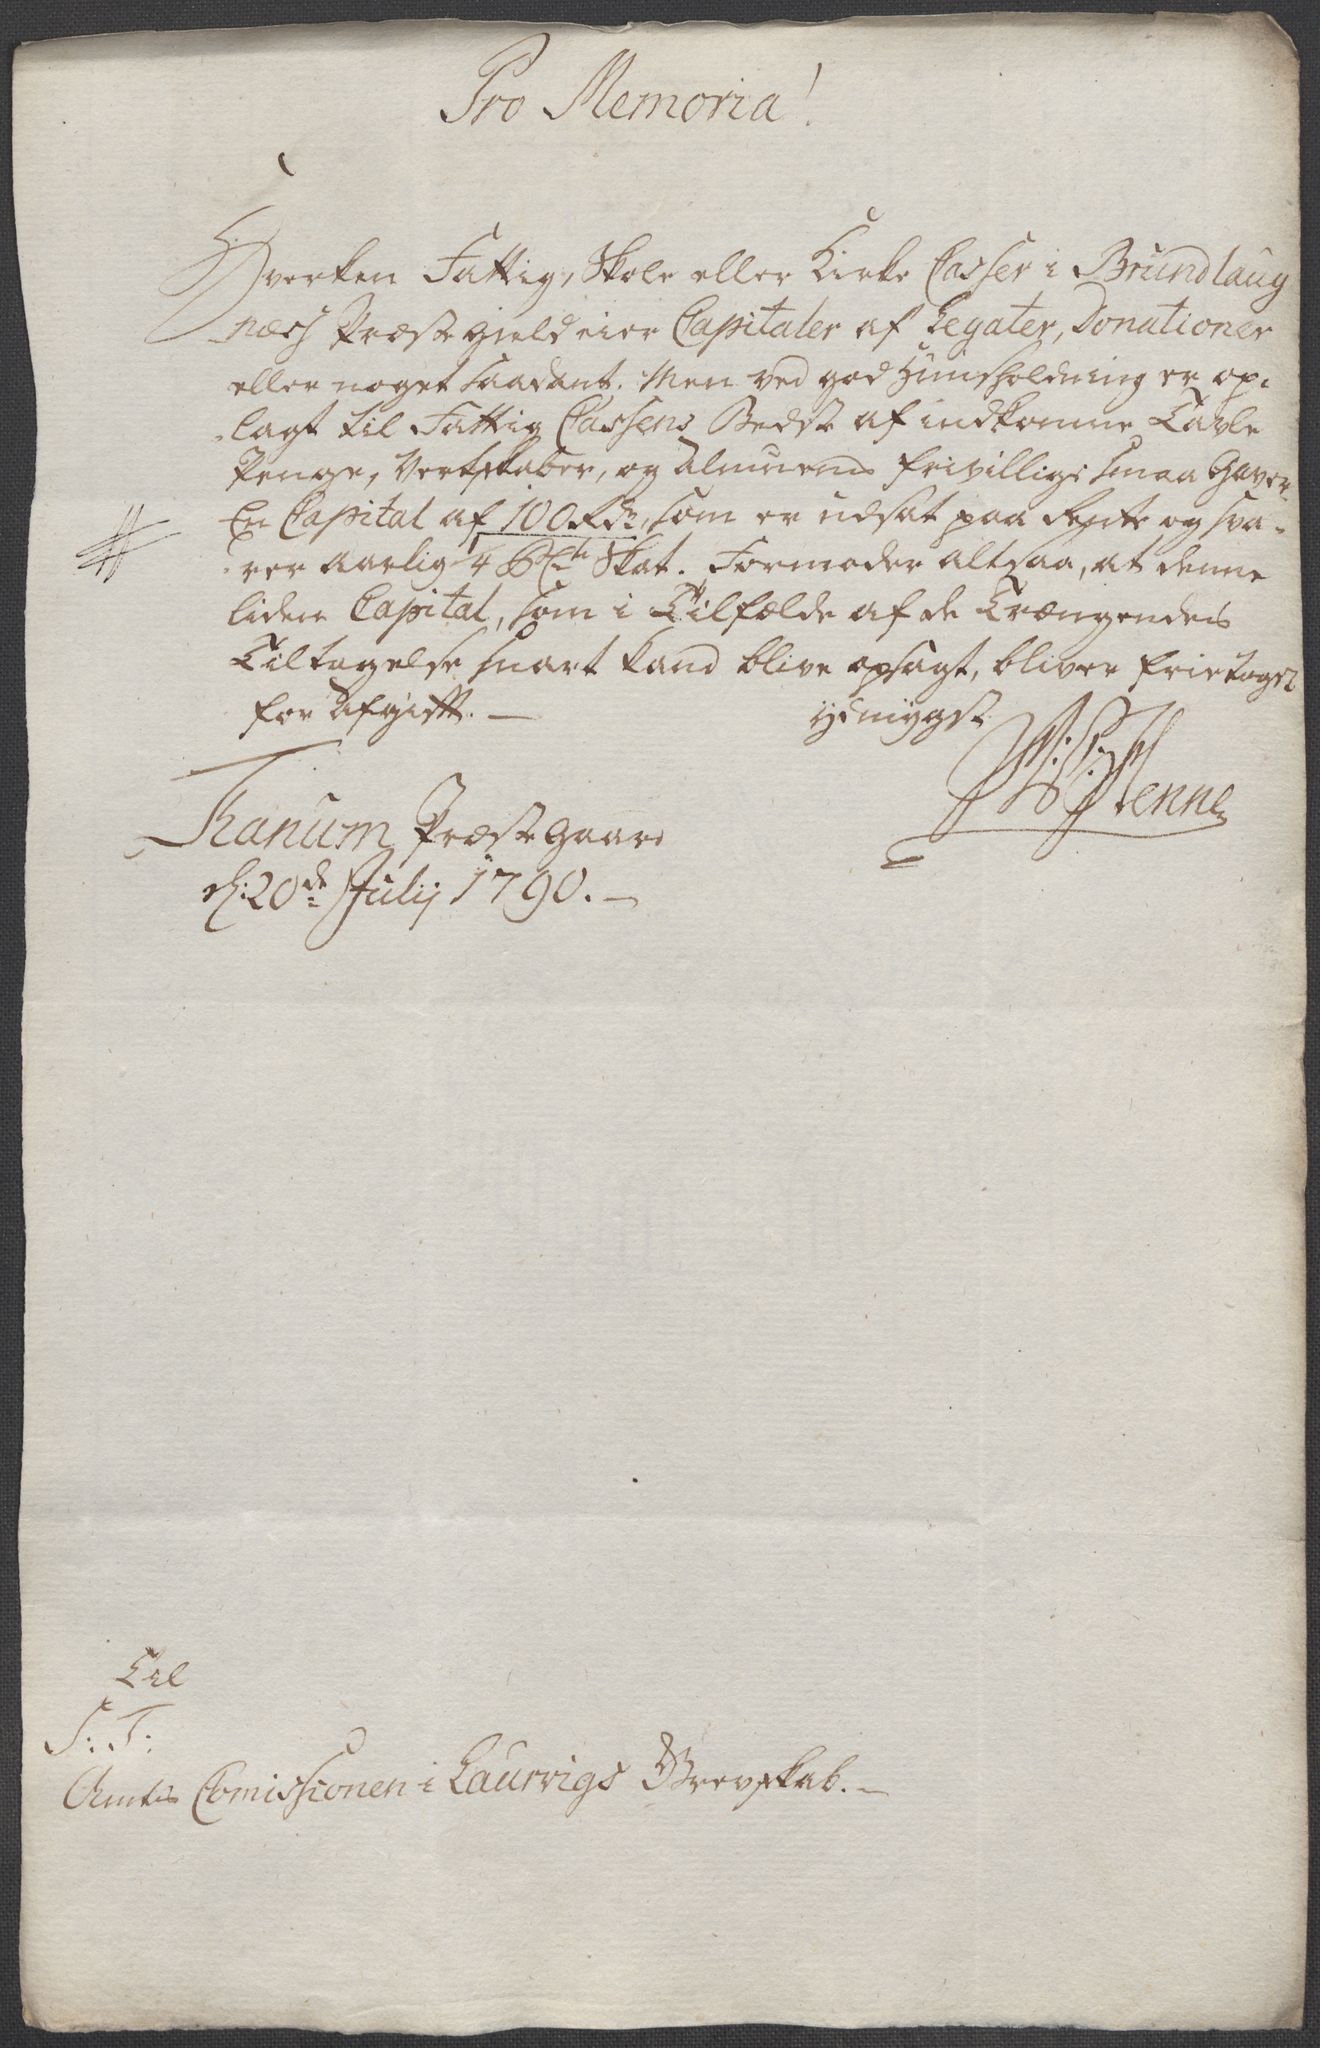 Pro Memoria!
Hverken Fattig, Skole eller Kirke Casser i Brundlaug
næs Præstegield eier Capitaler af Legater, Donationer
eller noget saadant. Men ved god Huusholdning er op-
lagt til Fattig Cassens Bedste af indkomne Tavle
Penge, Vertskaber, og Almuens frivillige smaa Gaver
En Capital af 100 Rdr, som er udsat paa Rente og sva-
rer aarlig 4 Skat. Formoder altsaa, at denne
liden Capital, som i Tilfælde af de Trængendes
Tiltagelse snart kand blive opsagt, bliver frietaget
for Afgift. —
ydmygst
Tanum Præstegaard
d: 20de Julij 1790. —
Til
S: T:
Amts Comissionen i Laurvigs Grevskab. —